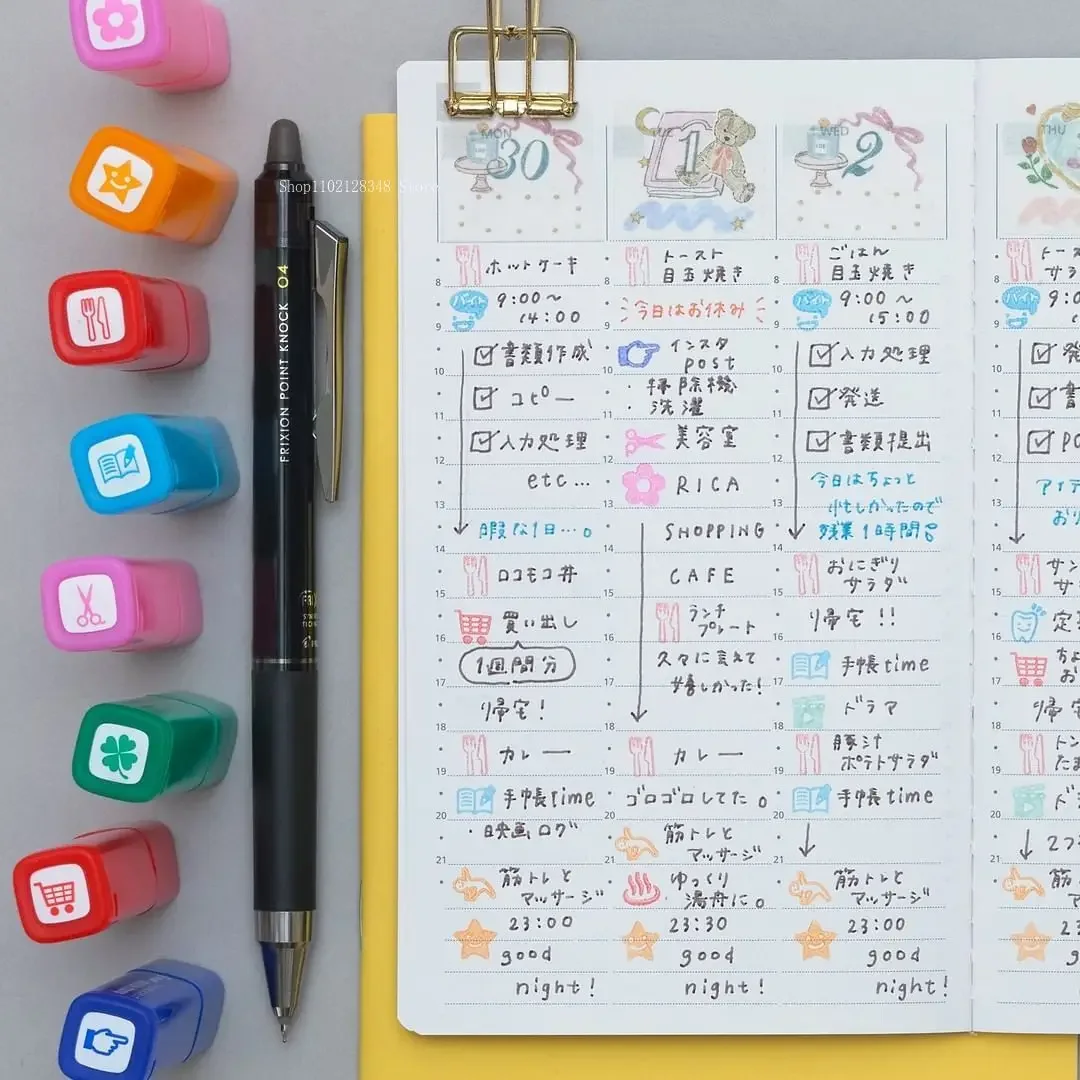 Shop1102128348 Store
FRIXION POINT KNOCK 04
MON
30
8
ホットケーキ
9
バイト
9:00〜
14:00
10
書類作成
11
コピー
12
入力処理
13
etc...
14
暇な1日…。
15
ロコモコ丼
16
買い出し
17
1週間分
18
帰宅!
19
カレー
20
手帳time
・映画ログ
21
筋トレと
マッサージ
23:00
good
night!
1
8
トースト
目玉焼き
9
今日はお休み
10
インスタ
post
11
・掃除機
・洗濯
12
美容室
13
RICA
14
SHOPPING
15
CAFE
16
ランチ
プレート
17
久々に会えて
嬉しかった!
18
19
カレー
20
ゴロゴロしてた。
21
筋トレと
マッサージ
ゆっくり
湯舟に。
23:30
good
night!
WED
2
8
ごはん
目玉焼き
9
バイト
9:00〜
15:00
10
入力処理
11
発送
12
書類提出
13
今日はちょっと
忙しかったので
14
残業1時間
15
おにぎり
サラダ
16
帰宅!!
17
手帳time
18
ドラマ
19
豚汁
ポテトサラダ
20
手帳time
21
筋トレと
マッサージ
23:00
good
night!
THU
8
9
バイト
9:0
10
11
12
13
14
15
16
17
18
帰宅
19
20
21